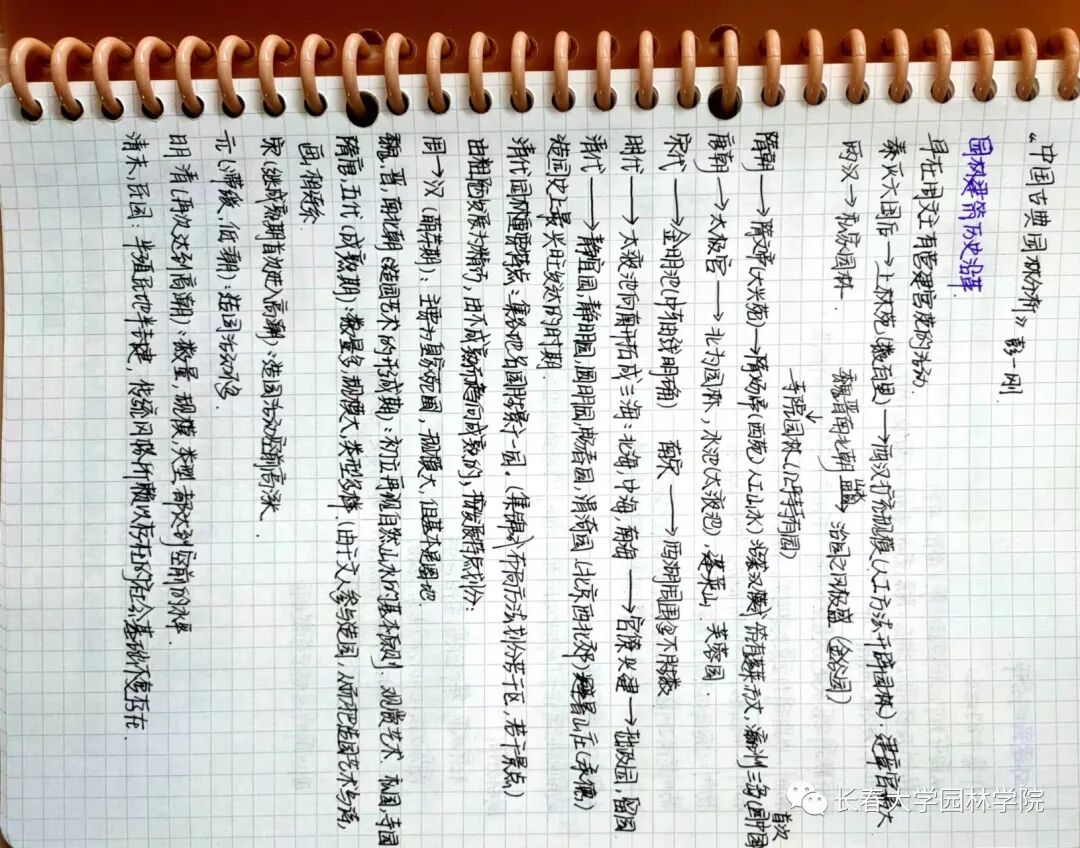 “中国古典园林分析》彭一刚
园林建筑历史沿革
早在周文王有营建宫苑的活动
秦灭六国后→上林苑(数百里)→西汉扩充规模(人工方法开辟园林).建章宫最大
两汉→私家园林 魏晋南北朝→治园之风极盛(金谷园)
寺院园林(几乎寺寺有园)
隋朝→隋文帝(大兴苑)→隋炀帝(西苑)(人工山水)沿袭汉 筑有蓬莱、方丈、瀛洲三岛(园中园首次
唐朝→太极宫→北为园林,水池(太液池),蓬莱山 芙蓉园.
宋代→金明池(中有曲 ) 南宋→西湖周围多不胜数
明代→太液池向南开拓成三海:北海,中海,南海→官僚兴建→拙政园,留园
清代→静宜园,静明园,圆明园,畅春园,清漪园(北京西北郊)避暑山庄(承德)
造园史上最兴旺发达的时期.
清代园林重要特点:集各地名园胜景于一园.(集锦式布局方法划分若干区,若干景点)
由粗略发展为精巧,由不成熟而趋向成熟的,按发展特点划分:
周→汉(萌芽期):主要为皇家苑囿,规模大,但基本是圈地.
魏、晋、南北朝(造园艺术的形成期):初立再现自然山水的基本原则.观赏艺术 私园,寺园
隋唐,五代(成熟期):数量多,规模大,类型多样(由于文人参与造园,从而把造园艺术与诗,
画,相联系.
宋(继成熟期首次进入高潮):造园活动空前高涨
元(滞缓,低潮):造园活动不多.
明、清(再次达到高潮):数量,规模,类型都达到空前的水平
清末、民国:半殖民地半封建,传统风格所赖以存在的社会基础不复存在.
长春大学园林学院